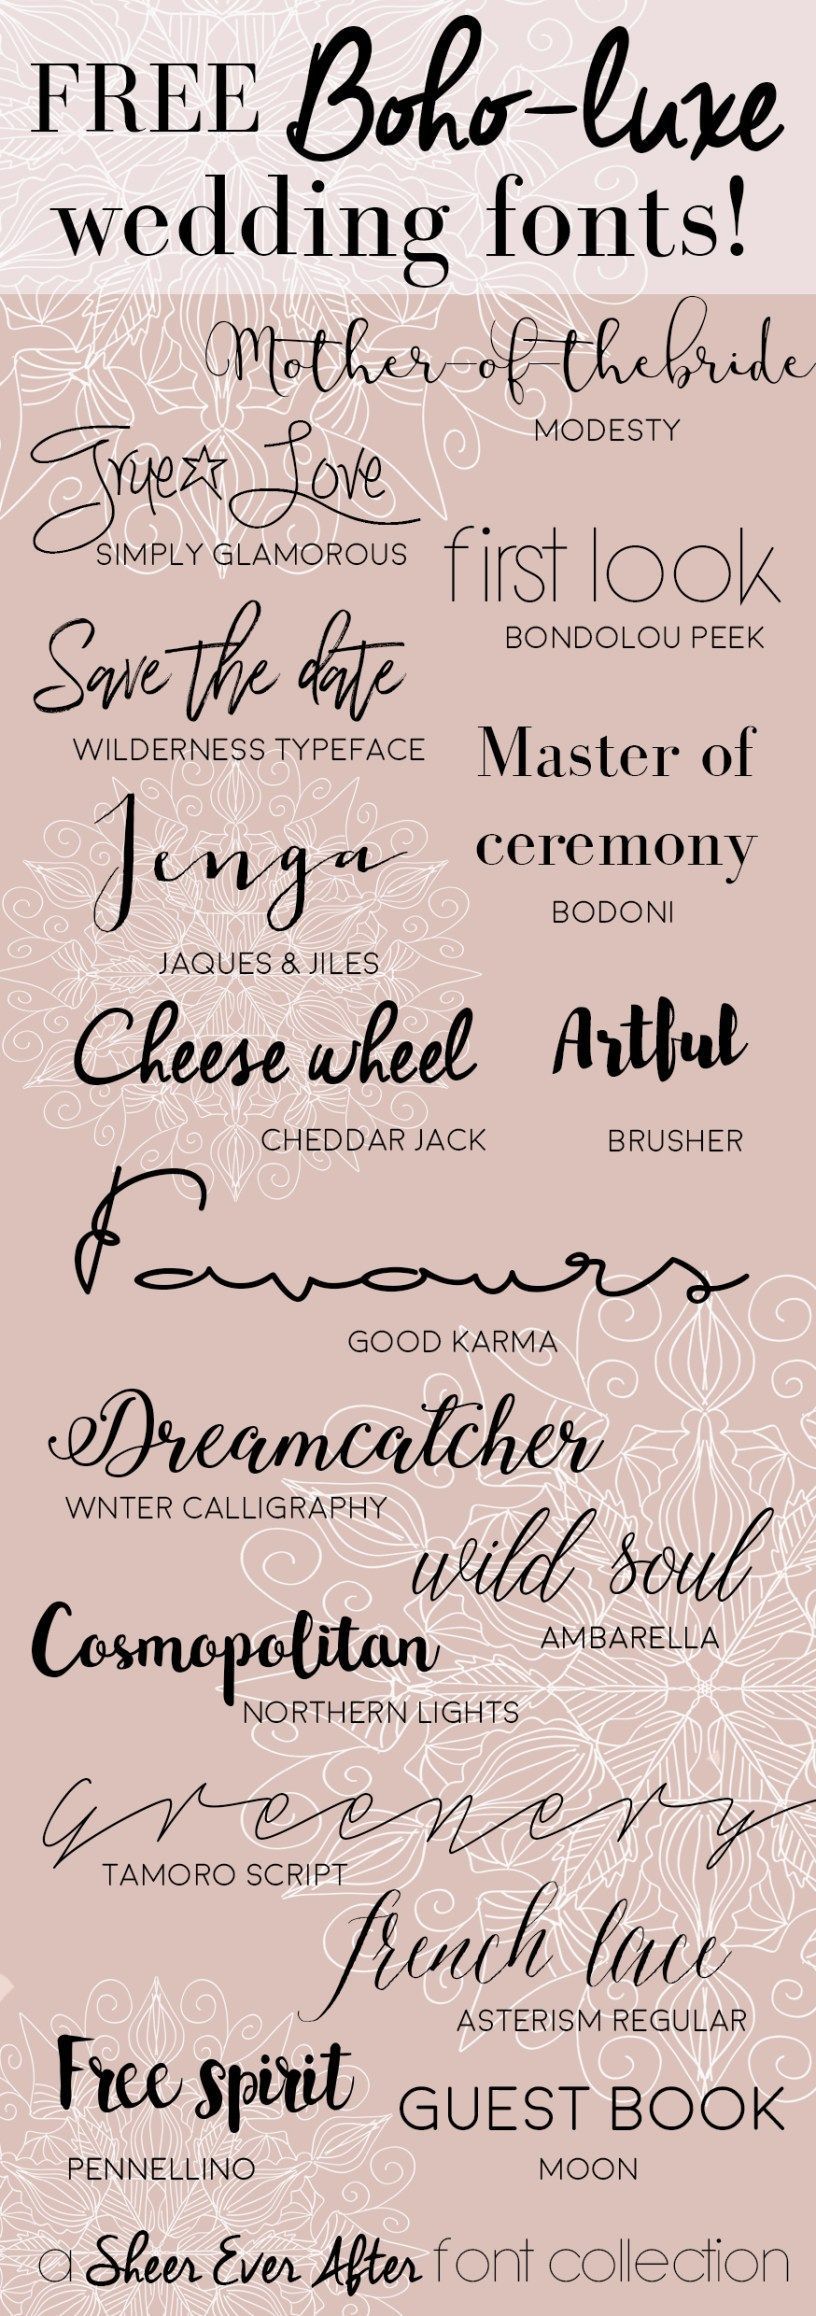 FREE Boho-luxe
wedding fonts!
Mother-of-thebride
MODESTY
True☆Love
SIMPLY GLAMOROUS
first look
BONDOLOU PEEK
Save the date
WILDERNESS TYPEFACE
Master of
ceremony
BODONI
Jenga
JAQUES & JILES
Cheese wheel
CHEDDAR JACK
Artful
BRUSHER
Favours
GOOD KARMA
Dreamcatcher
WNTER CALLIGRAPHY
wild soul
AMBARELLA
Cosmopolitan
NORTHERN LIGHTS
greenery
TAMORO SCRIPT
french lace
ASTERISM REGULAR
Free spirit
PENNELLINO
GUEST BOOK
MOON
a Sheer Ever After font collection